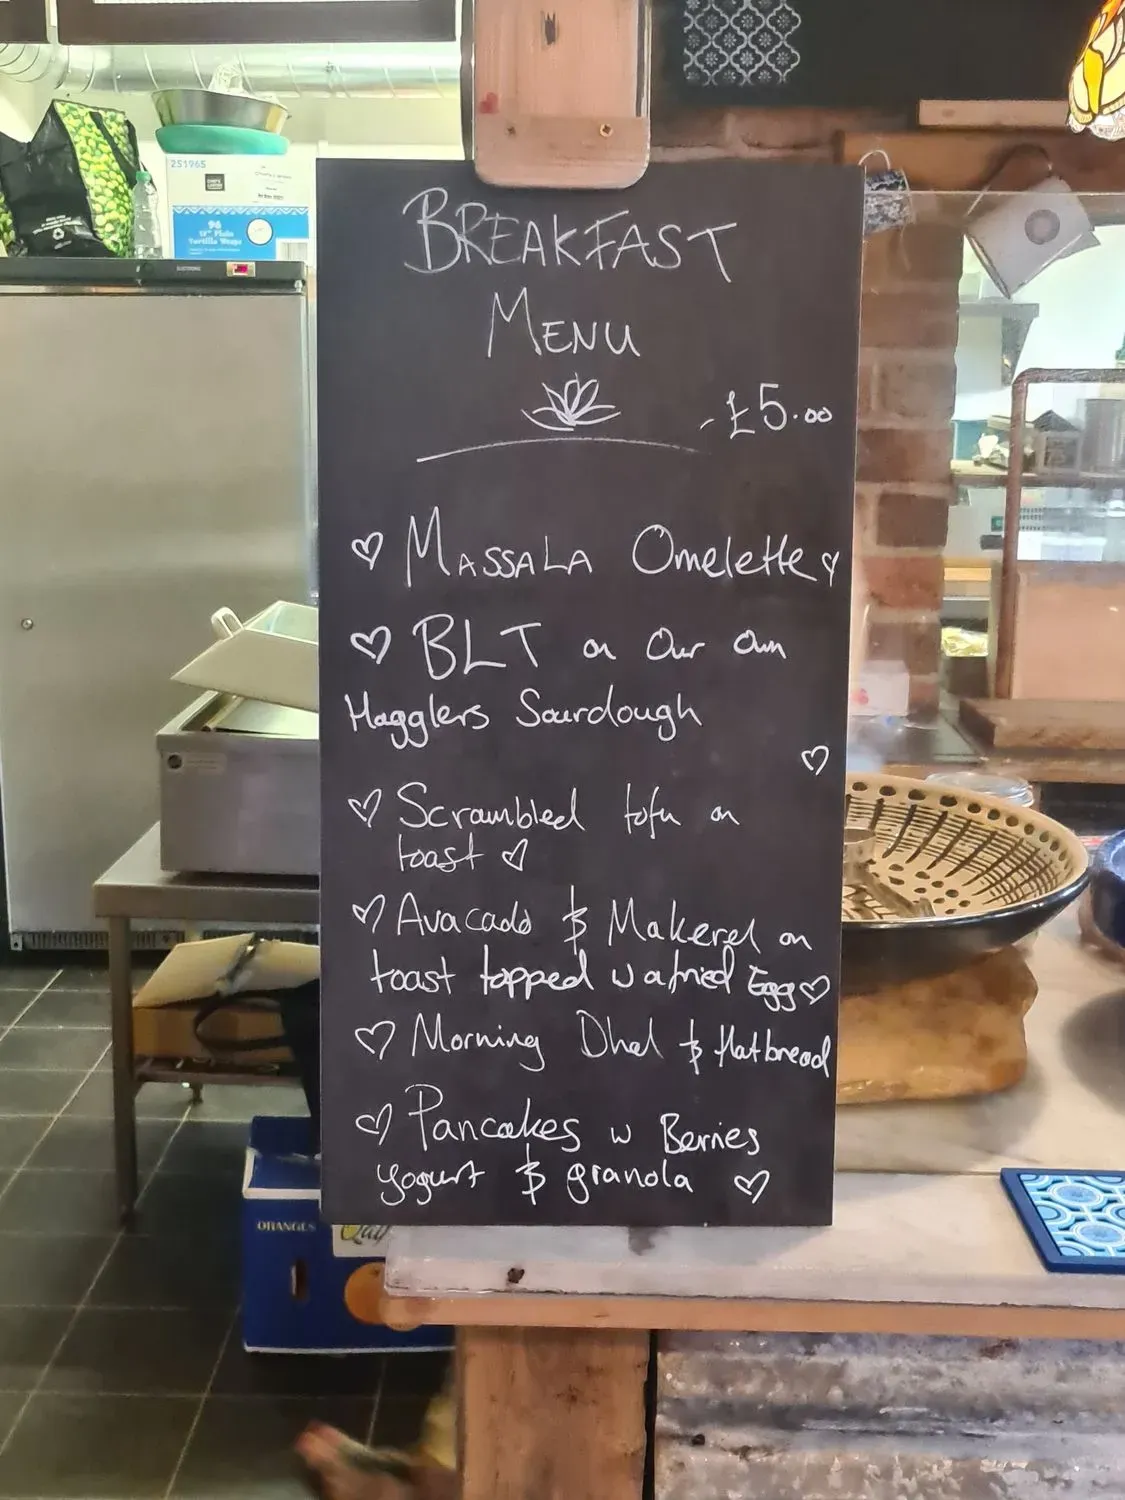 BREAKFAST
MENU
- £5.00
MASSALA Omelette
BLT on Our Own
Hagglers Sourdough
Scrambled tofu on
toast
Avacado & Makerel on
toast topped w a fried Egg
Morning Dhal & flatbread
Pancakes w Berries
yogurt & granola
251965
96
12" Plain
Tortilla Wraps
ORANGES